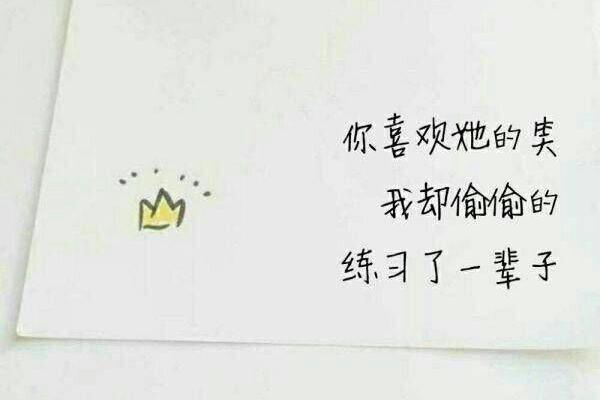 你喜欢她的
我却偷偷的
练习了一辈子